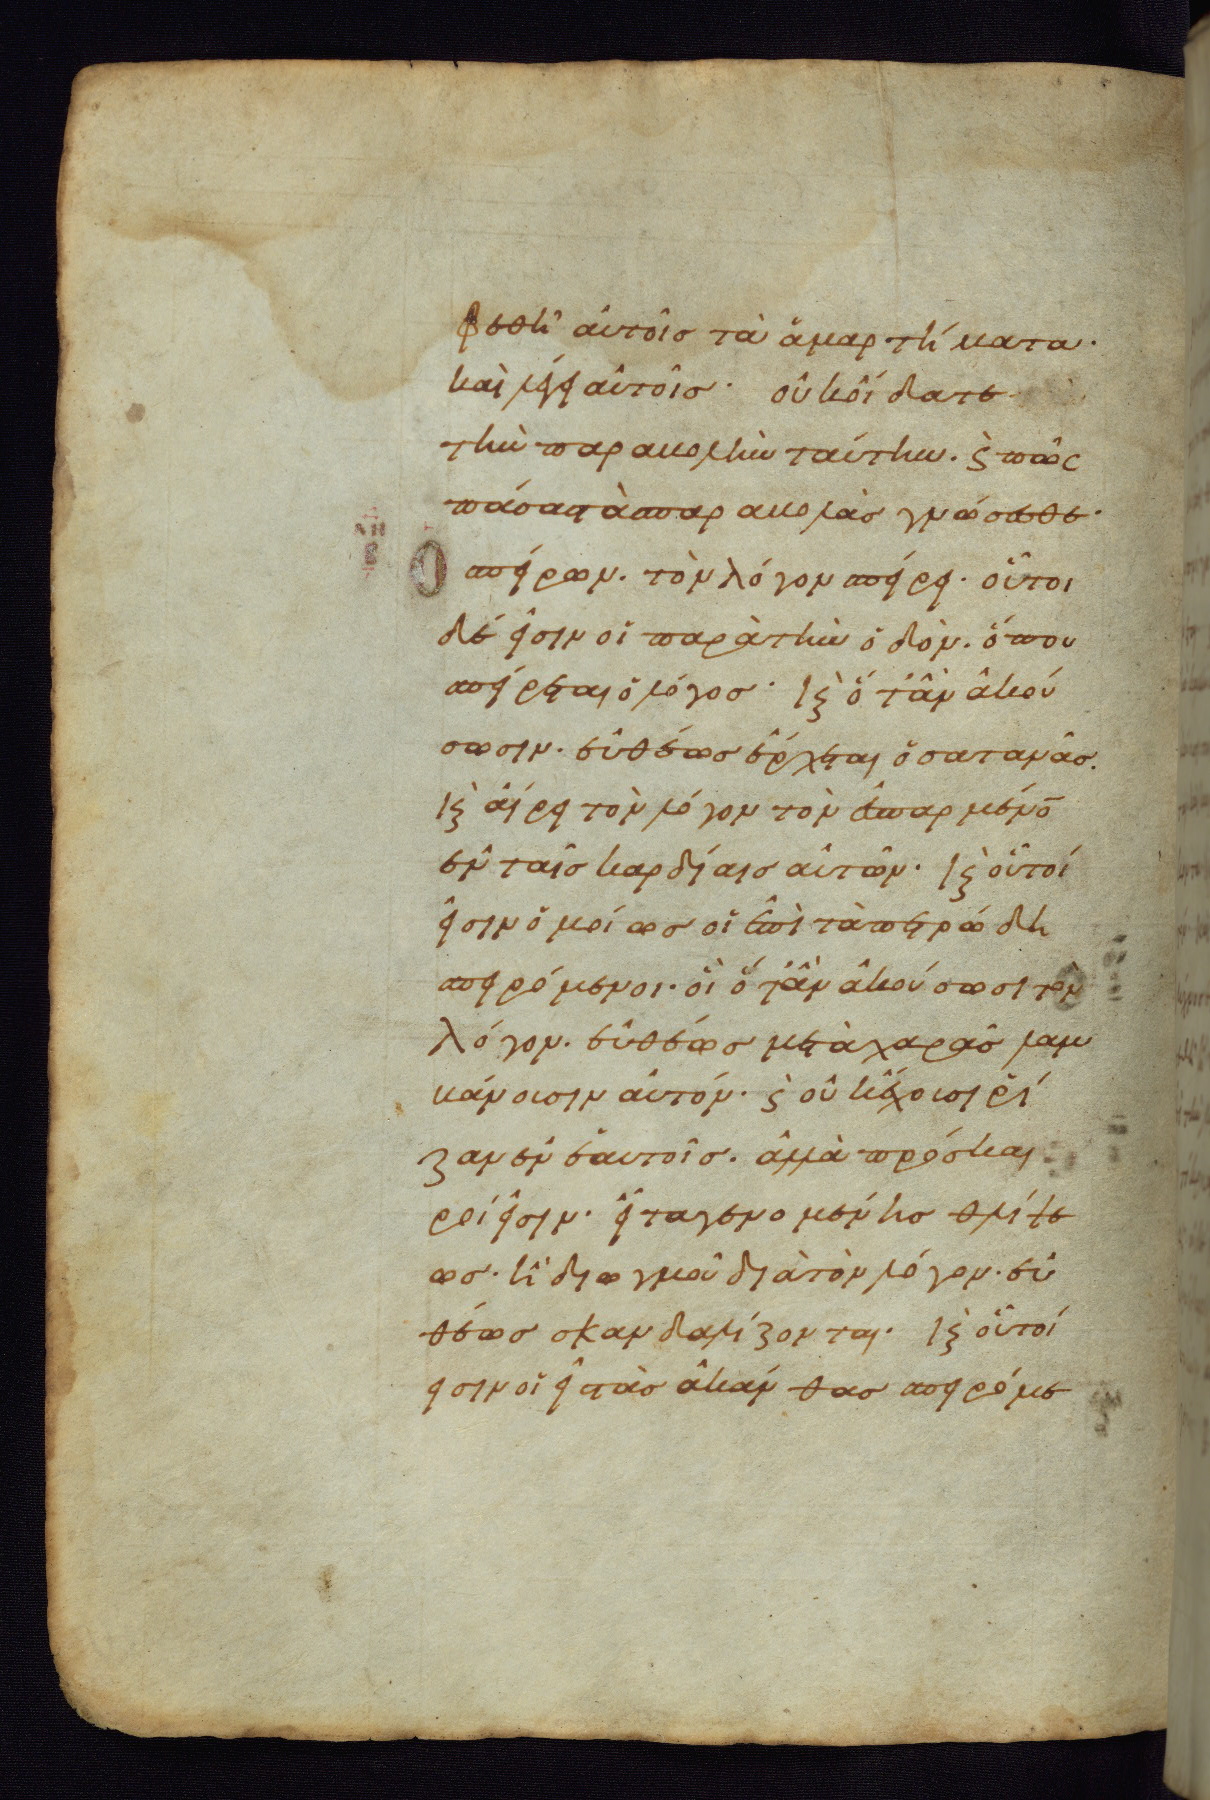 φεθῆ αὐτοῖς τὰ ἁμαρτήματα·
καὶ λέγει αὐτοῖς· οὐκ οἴδατε
τὴν παραβολὴν ταύτην. ϗ πῶς
πάσας τὰς παραβολὰς γνώσεσθε·
ΛΗ
β
Ὁ σπείρων. τὸν λόγον σπείρει. οὗτοι
δέ εἰσιν οἱ παρὰ τὴν ὁδὸν. ὅπου
σπείρεται ὁ λόγος· κϗ ὅταν ἀκού
σωσιν. εὐθέως ἔρχεται ὁ σατανᾶς.
κϗ αἴρει τὸν λόγον τὸν ἐσπαρμένο̅
ἐν ταῖς καρδίαις αὐτῶν. κϗ οὗτοί
εἰσιν ὁμοίως οἱ ἐπὶ τὰ πετρώδη
σπειρόμενοι. οἳ ὅταν ἀκούσωσι τὸν
λόγον. εὐθέως μετὰ χαρᾶς λαμ
βάνουσιν αὐτόν. ϗ οὐκ ἔχουσι ῥί
ζαν ἐν ἑαυτοῖς. ἀλλὰ πρόσκαι
ροί εἰσιν. εἶτα γενομένης θλίψε
ως. ἢ διωγμοῦ διὰ τὸν λόγον. εὐ
θέως σκανδαλίζονται. κϗ οὗτοί
εἰσιν οἱ εἰς τὰς ἀκάνθας σπειρόμε